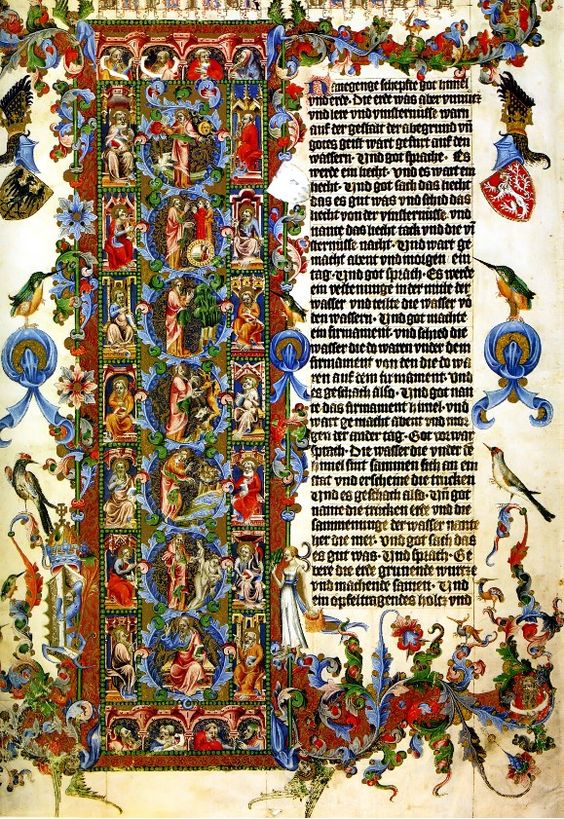 Nanegenge schepfte got himel
vnd erde. Die erde was aber vnnutz
vnd lere vnd vinsternusse warn
auf der gestalt der abegrund vn
gotes geist wart gefurt auf den
wassern. Vnd got sprache. Es
werde ein liecht. Vnd es wart ein
liecht. Vnd got sach das liecht
das es gut was vnd schid das
liecht von der vinsternusse. vnd
nante das liecht tack vnd die vi
sternusse nacht. Vnd wart ge
macht abent vnd morgen. ein
tag. Vnd got sprach. Es werde
ein vestenunge in der mitte der
wasser vnd teilte die wasser vo
den wassern. Vnd got machte
ein firmament. vnd schied die
wasser die do waren vnder dem
firmament von den die do wa
ren auf dem firmament. vnd
es geschach also. Vnd got nan
te das firmament himel. vnd
wart ge macht abent vnd mor
gen der ander tag. Got vorwar
sprach. Die wasser die vnder de
himel sint sammen sich an ein
stat vnd erscheine die trucken
Vnd es geschach also. Vn got
nante die trucken erde vnd die
sammenunge der wasser nante
her die mer. vnd got sach das
es gut was. Vnd sprach. Ge
bere die erde grunende wurtze
vnd machende samen. Vnd
ein opfeltragendes holtz vnd